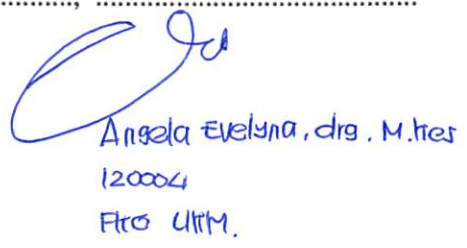 ..........., ................................................
Angela Evelyna, drg. M.Kes
120004
FKG UKM.